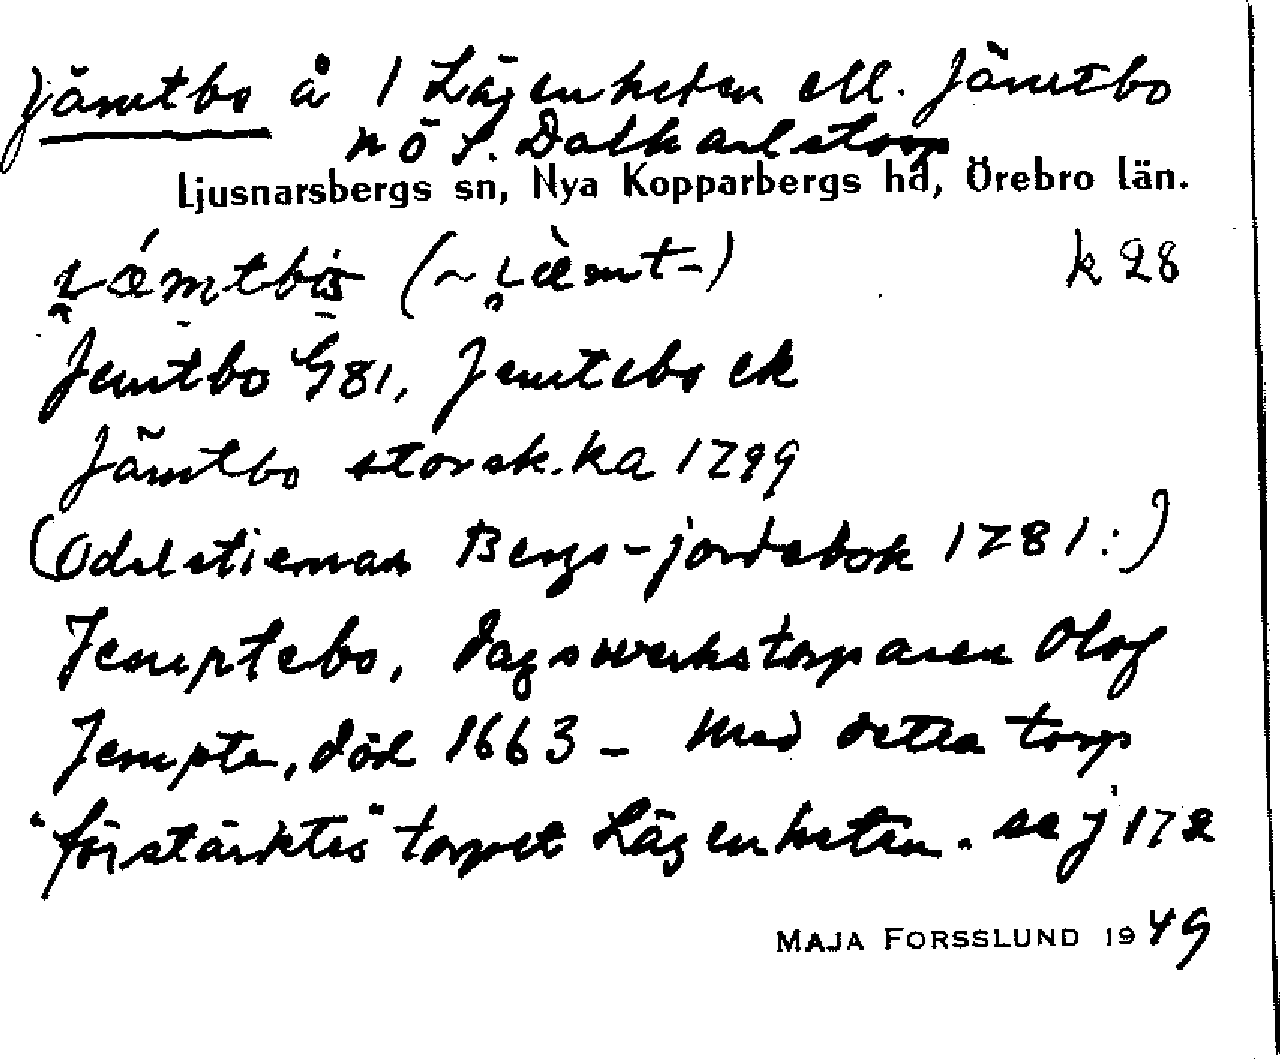 Jämtbo å 1 Lägenheten ell. Jämtbo
nö S. Dalkarlstorp
Ljusnarsbergs sn, Nya Kopparbergs hd, Örebro län.
k 28
Jemtbo G81, Jemtebo ek
Jämtbo storsk.ka 1799
(Odelstiernas Bergs-jordebok 1781:)
Jemptebo, dagswerkstorparen Olof
Jempte, död 1663 - Med detta torp
"förstärktes" torpet Lägenheten. se j 172
MAJA FORSSLUND 1949